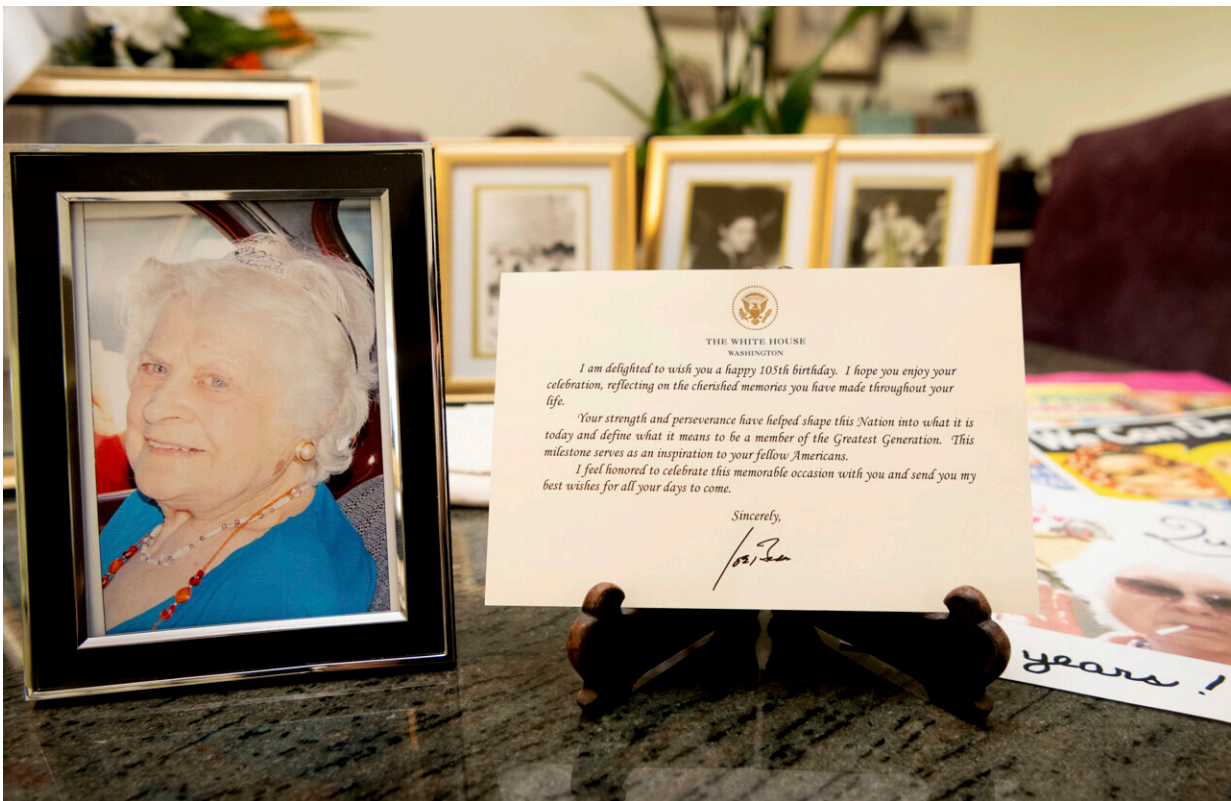 THE WHITE HOUSE
WASHINGTON
I am delighted to wish you a happy 105th birthday. I hope you enjoy your
celebration, reflecting on the cherished memories you have made throughout your
life.
Your strength and perseverance have helped shape this Nation into what it is
today and define what it means to be a member of the Greatest Generation. This
milestone serves as an inspiration to your fellow Americans.
I feel honored to celebrate this memorable occasion with you and send you my
best wishes for all your days to come.
Sincerely,
Joe Biden
We Can Do
years !